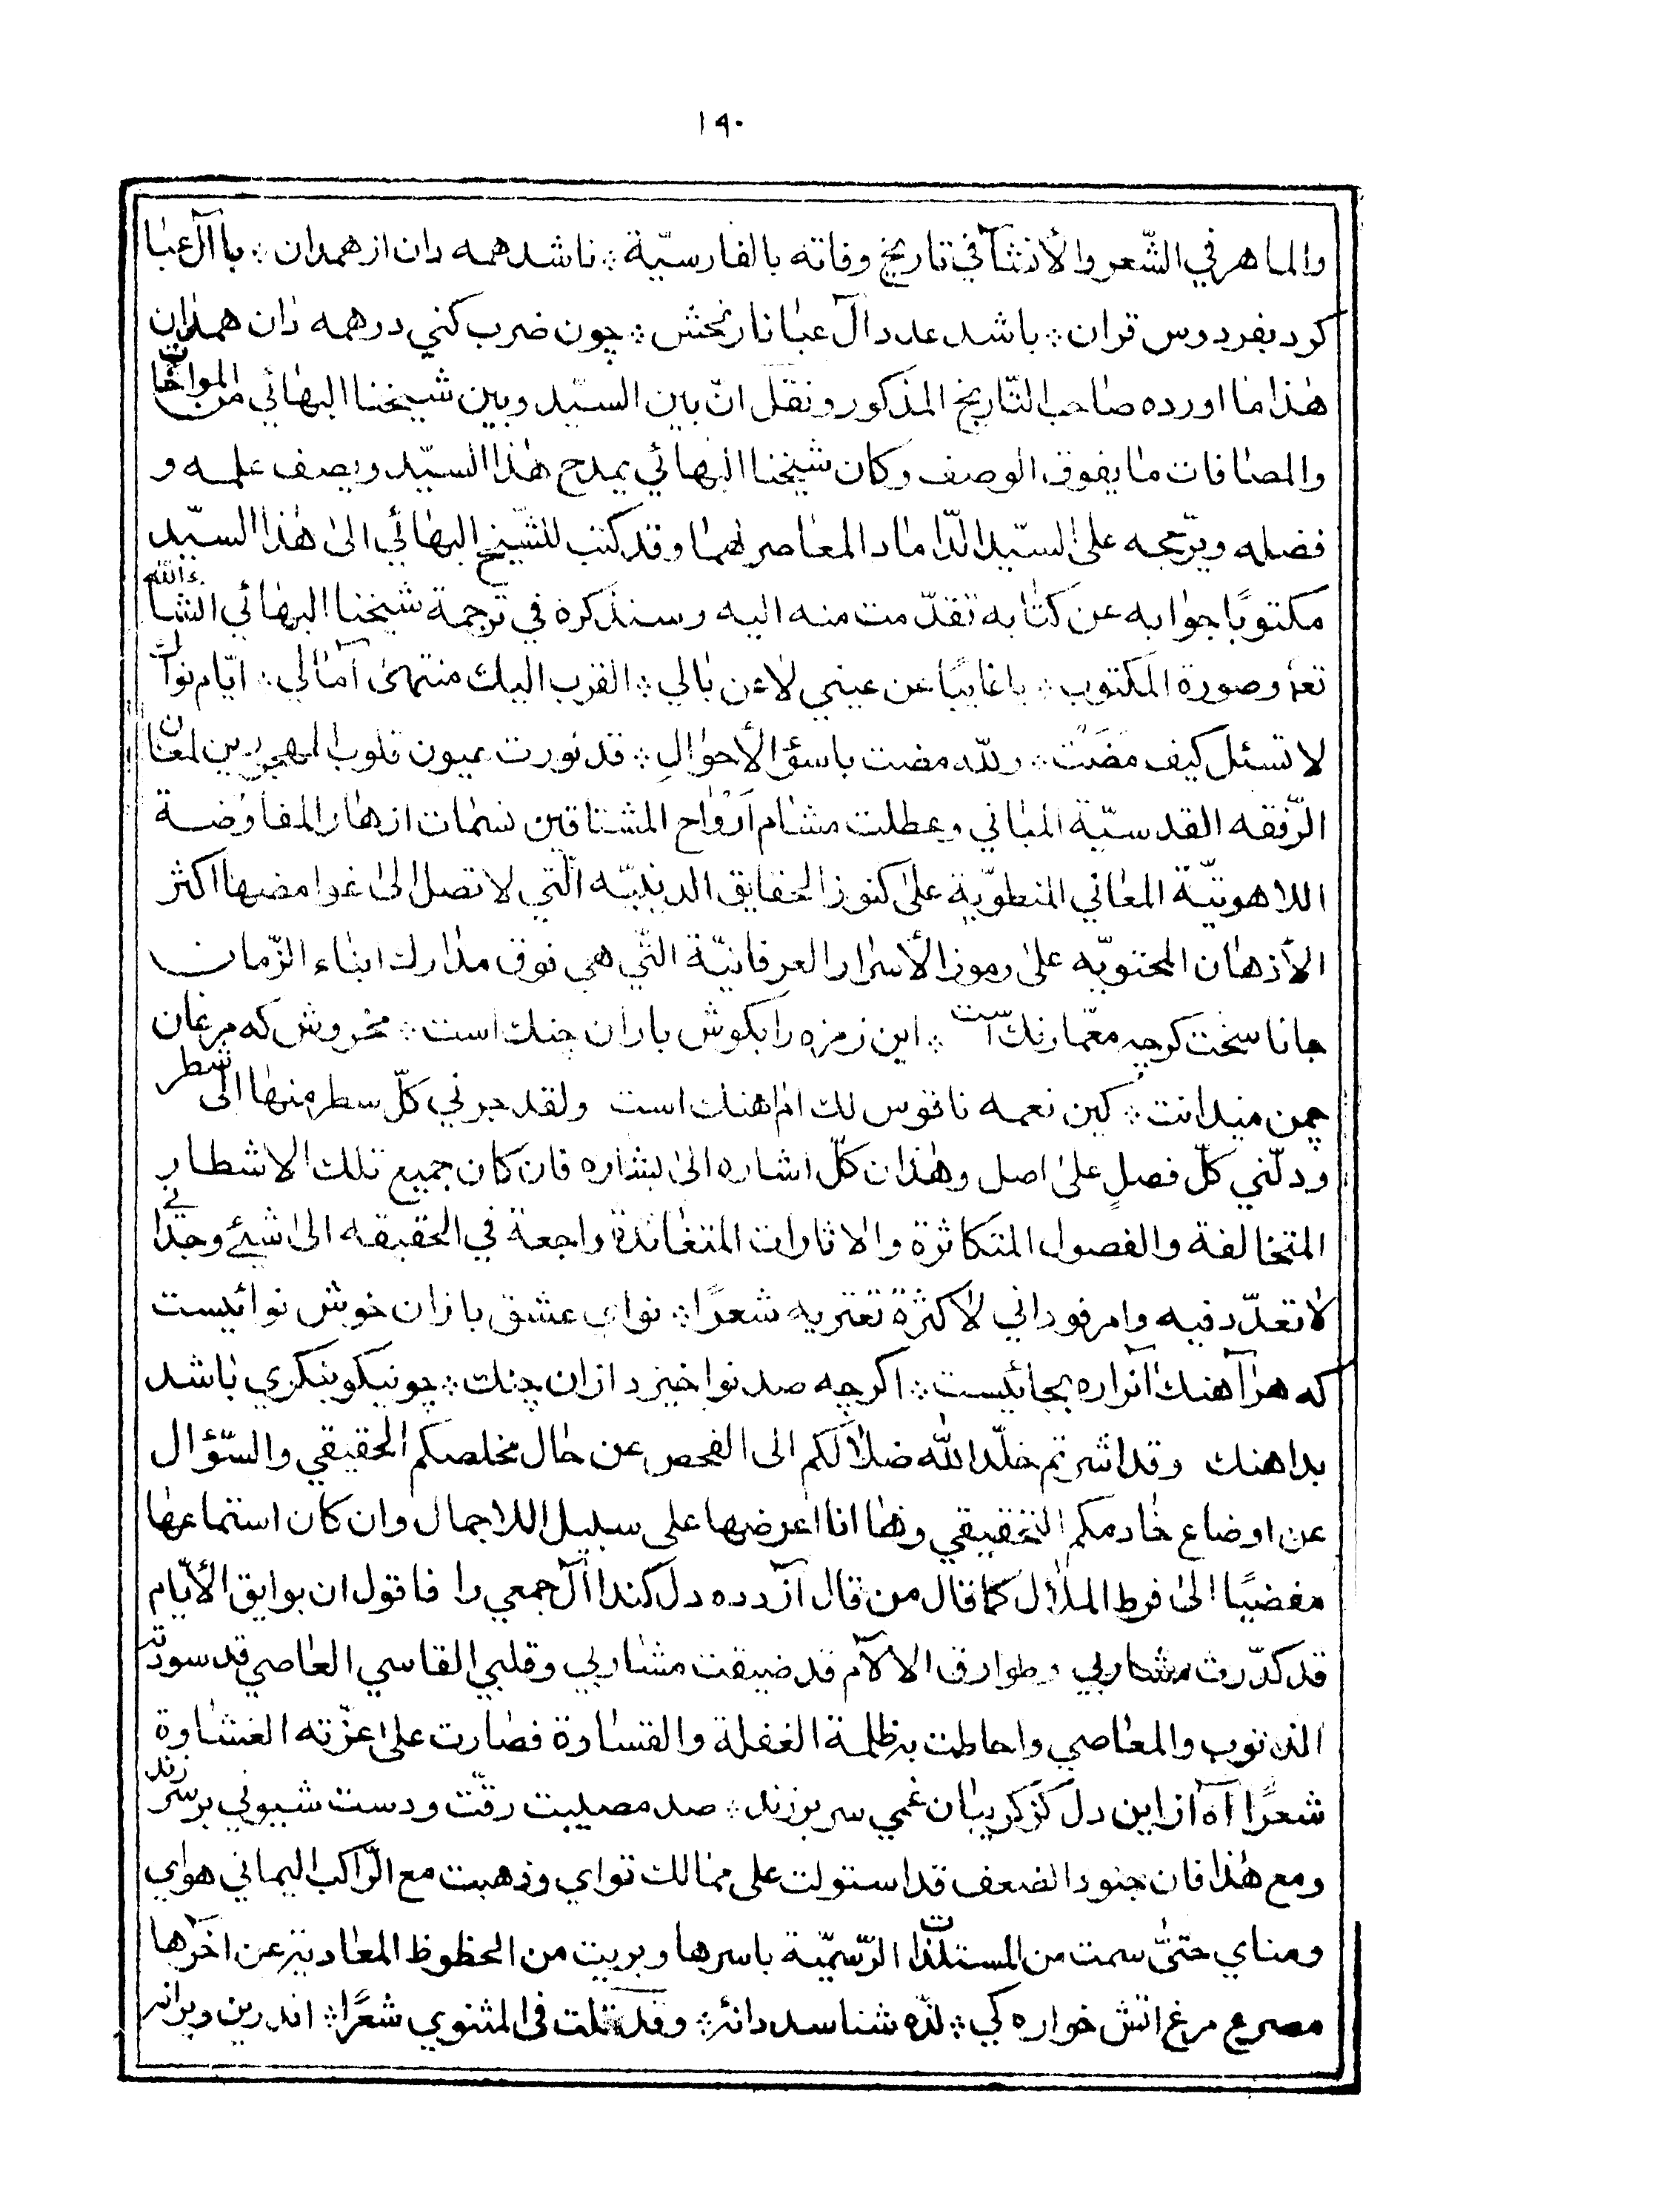 ١٩٠
والماهر في الشّعر والأنشآ في تاريخ وفاته بالفارسيّة ناشد همه دان از همدان با آل عبا
كرد بفردوس قران باشد عدد آل عبا تاريخش چون ضرب كني در همه دان همدان
هذا ما اورده صاحب التّاريخ المذكور ونقل انّ بين السيّد وبين شيخنا البهائي من المواخات
والمصافات ما يفوق الوصف وكان شيخنا البهائي يمدح هذا السيّد ويصف علمه و
فضله ويرجحه على السيّد الدّاماد المعاصر لهما وقد كتب للشّيخ البهائي الى هذا السيّد
مكتوبًا جوابه عن كتابه تقدّمت منه اليه وسنذكره في ترجمة شيخنا البهائي انشاءالله
تعم وصورة المكتوب ياغايبًا عن عيني لا عن بالي القرب اليك منتهى آمالي ايّام نواك
لا تسئل كيف مضت والله مضت باسؤ الأحوال قد نورت عيون قلوب المهجورين لمعان
الرّفقه القدسيّة المباني وعطلت مشام ارواح المشتاقين نسمات ازهار المفاوضة
اللاهوتيّة المعاني المنطويّة على كنوز الحقايق الدينيّه الّتي لا تصل الى غوامضها اكثر
الأذهان المحتويّه على رموز الأسرار العرفانيّة التّي هي فوق مدارك ابناء الزّمان
جانا سخنت كرچه معمّا رنك است اين زمزه را بكوش ياران جنك است مخروش كه مرغان
چمن ميدانت كين نغمه ناقوس لك ام اهنك است ولقد جرني كلّ سطر منها الى شطر
ودلّني كلّ فصلٍ على اصل وهذان كلّ اشاره الى بشاره فان كان جميع تلك الاشطار
المتخالفة والفصول المتكاثرة والاثارات المتغائدة راجعة في الحقيقه الى شيئ وحدانے
لا تعدّد فيه وامر فوداني لا كثرة تعتريه شعرًا نواي عشق بازان خوش نوائيست
كه هر آهنك آنراره بجائيست اكرچه صد نوا خيزد ازان چنك چو نيكو بنكري باشد
بداهنك وقد اشرتم خلّد الله ضلالكم الى الفحص عن حال مخلصكم الحقيقي والسّؤال
عن اوضاع خادمكم التحقيقي وها انا اعرضها على سبيل اللاجمال وان كان استماعها
مفضيًا الى فرط الملال كما قال من قال آزرده دل كند ألل جمعي را فاقول ان بوايق الأيّام
قد كدّرت مشاربي وطوارق الالام قد ضيقت مشاربي وقلبي القاسي العاصي قد سودته
الذنوب والمعاصي واحاطت به ظلمة الغفلة والقساوة فصارت على عزّته الغشاوة
شعرًا آه از اين دل كز كريبان غمي سر برزند صد مصيبت رفت ودست شيوني بر سر زند
ومع هذا فان جنود الضعف قد استولت على ممالك تواي وذهبت مع الرّاكب اليماني هواي
ومناي حتّى سمت من المستلذات الرّسميّة باسرها وبريت من الحظوظ المعادية عن اخرها
مصرع مرغ اتش خواره كي لذه شناسد دانه وقد قلت في المثنوي شعرًا اندرين ويرانه